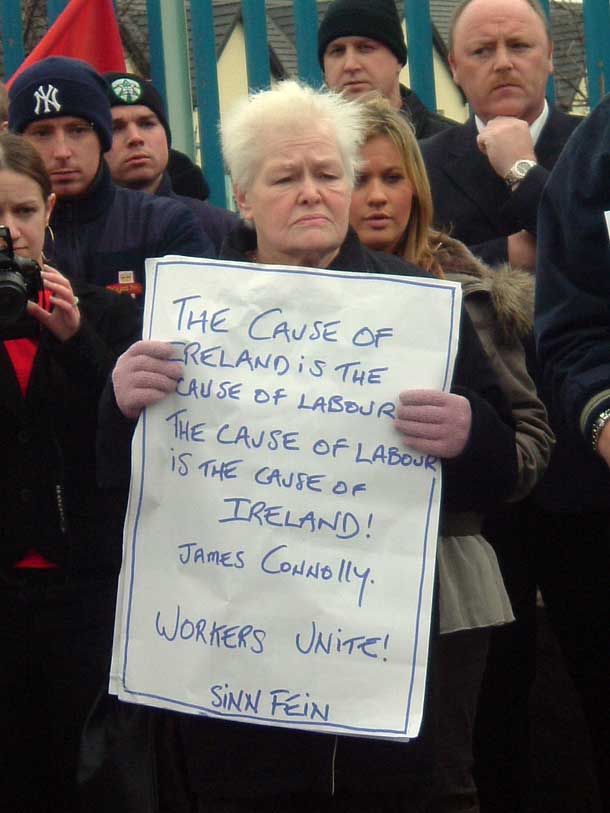 NY
THE CAUSE OF
IRELAND iS THE
CAUSE OF LABOUR
THE CAUSE OF LABOUR
iS THE CAUSE OF
IRELAND!
JAMES CONNOLLY.
WORKERS UNITE!
SINN FÉIN